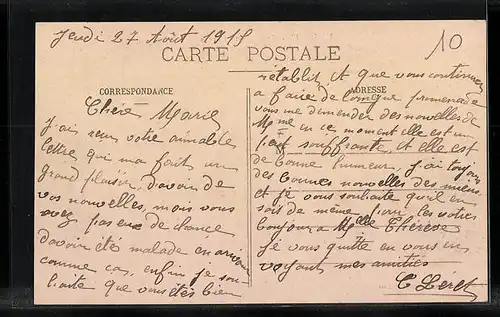 Jeudi 27 Août 1915
10
CARTE POSTALE
CORRESPONDANCE
Chère Marie
J'ai reçu votre aimable
lettre qui ma fait un
grand plaisir d'avoir de
vos nouvelles, mais vous
avez pas eue de chance
d'avoir été malade en
comme ça, enfin je sou
haite que vous êtes bien
ADRESSE
rétablit et que vous continuez
a faire de longue promenade
vous me demander des nouvelles de
Mme en ce moment elle est un
peut souffrante et elle est
de bonne humeur, j'ai toujours
des bonnes nouvelles des miens
et je vous souhaite qu'il en
soit de même pour les votres
bonjour a Melle Thérèse
je vous quitte en vous en
voyant mes amitiés
C Léret